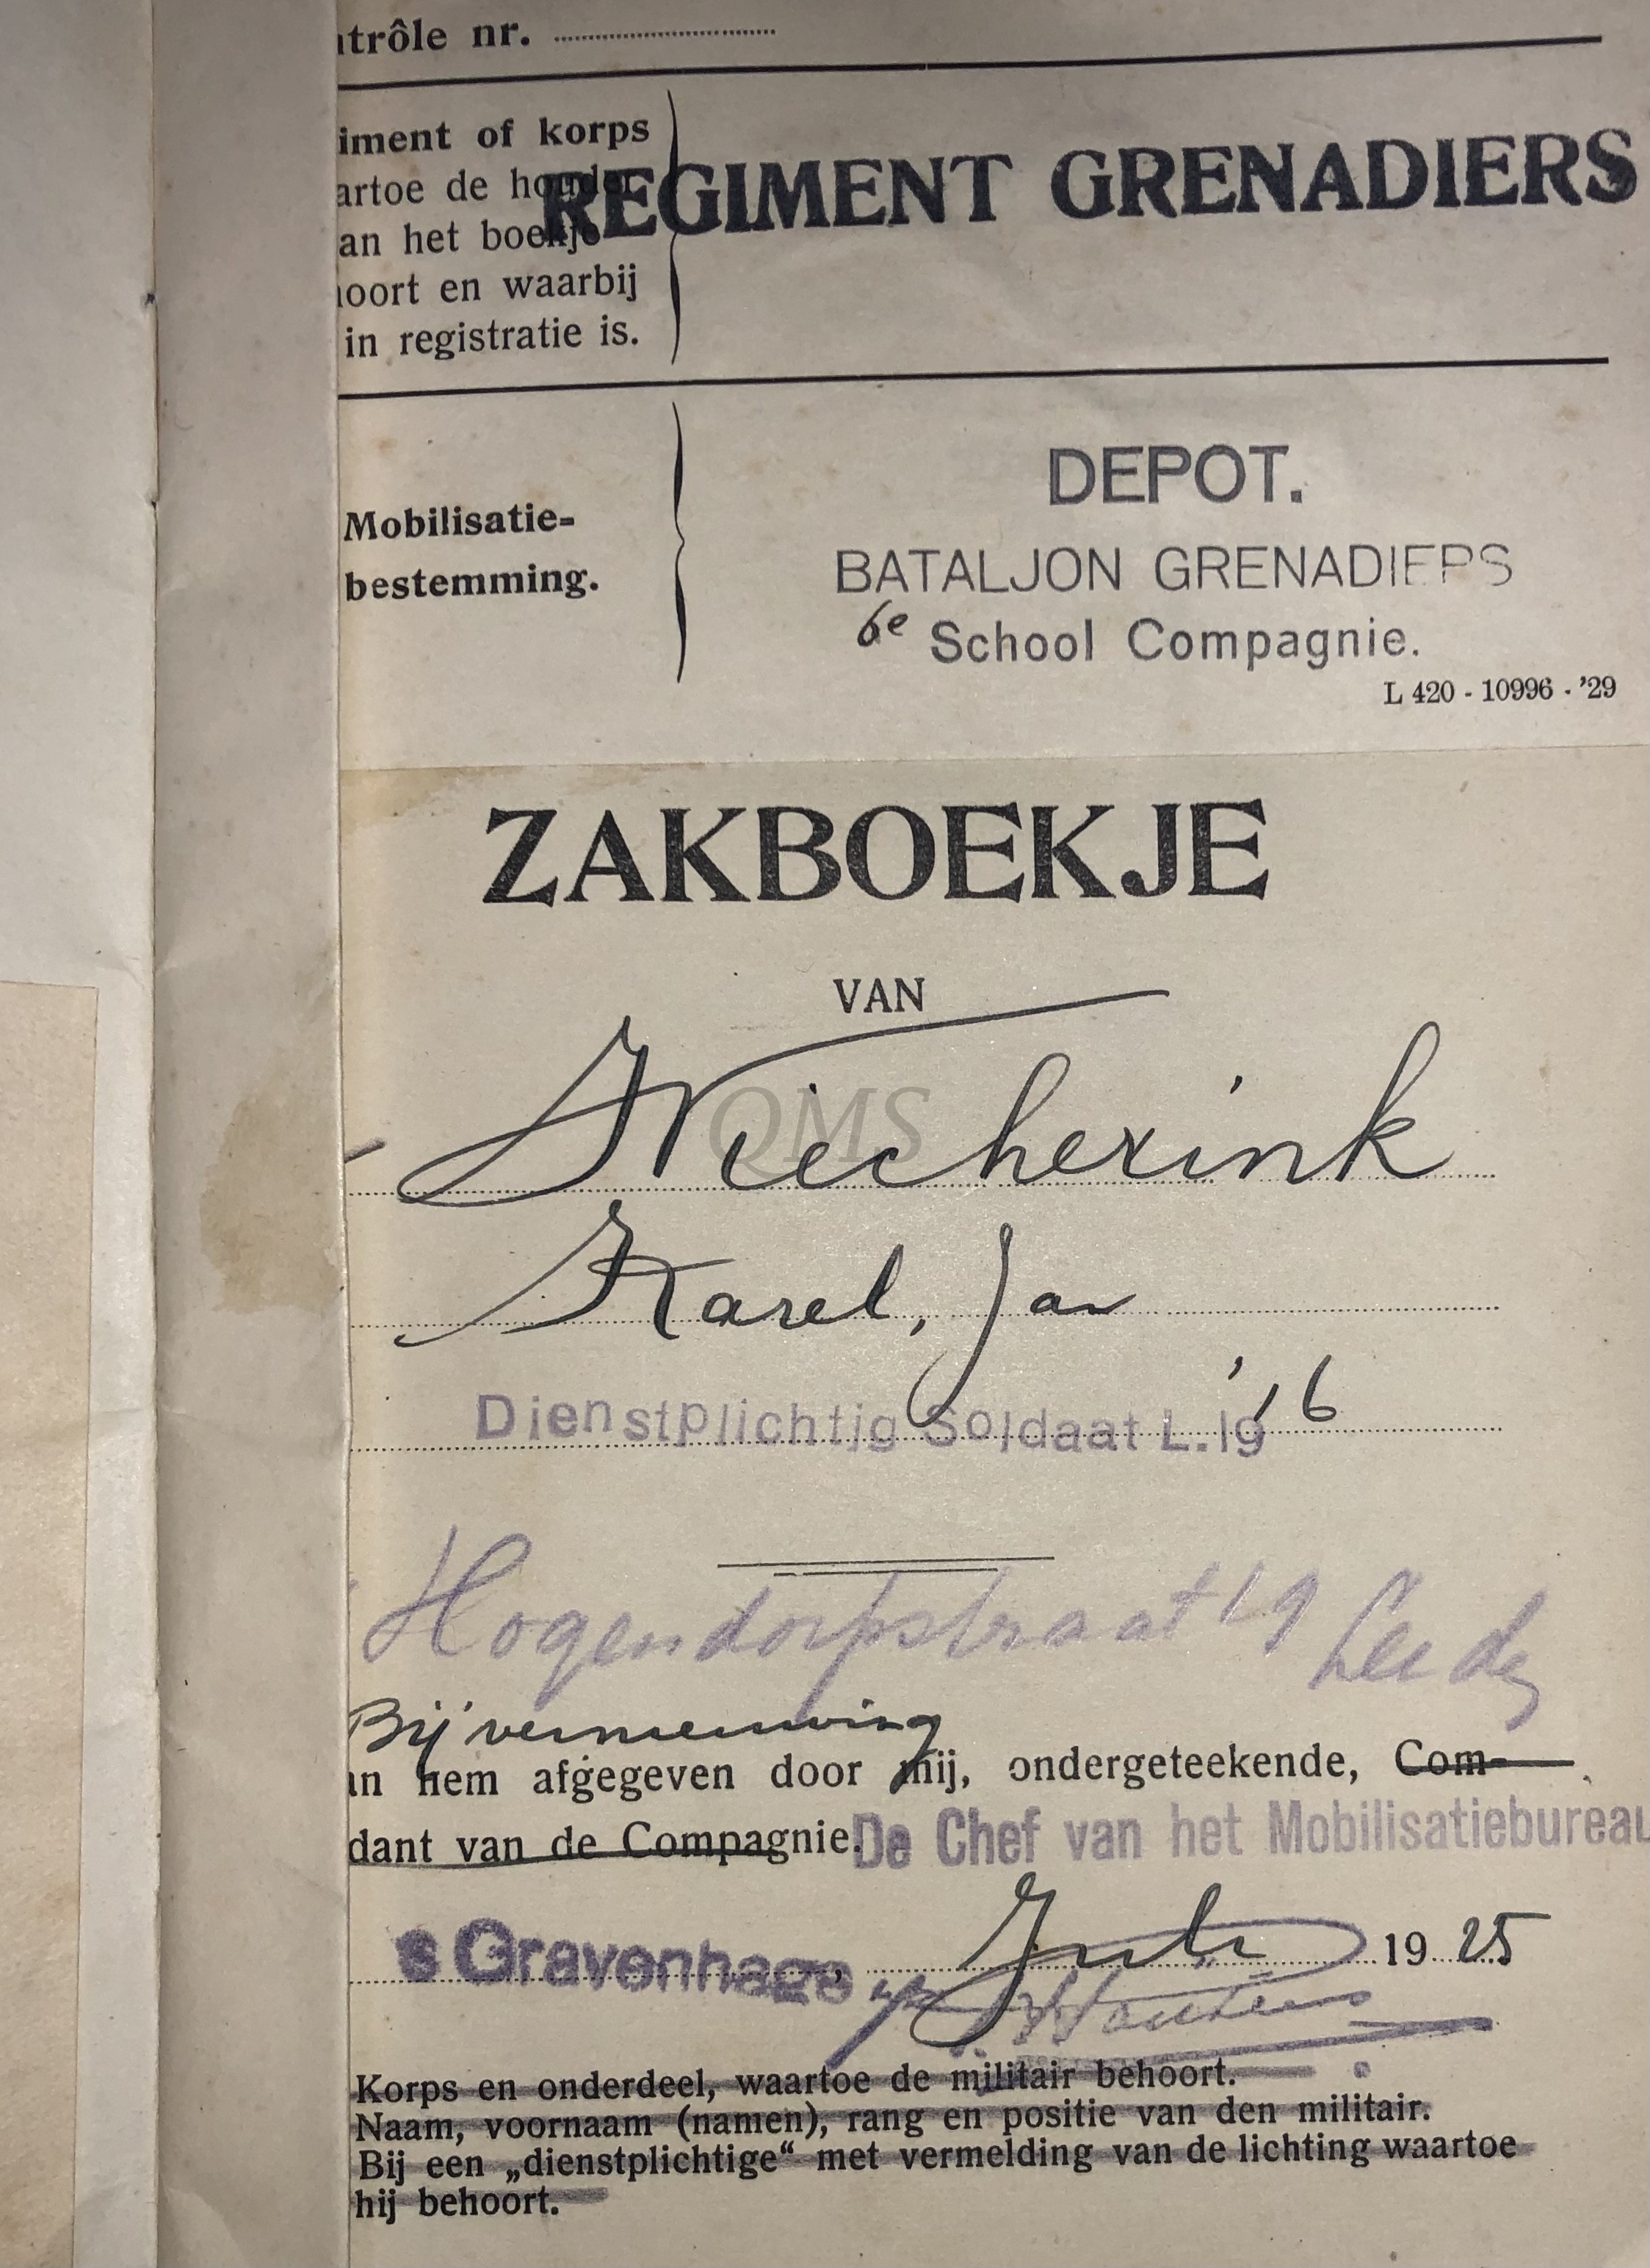 ntrôle nr.
iment of korps
artoe de houder
an het boekje
hoort en waarbij
in registratie is.
REGIMENT GRENADIERS
Mobilisatie-
bestemming.
DEPOT.
BATALJON GRENADIERS
6e School Compagnie.
L 420 - 10996 - '29
ZAKBOEKJE
VAN
QMS
Wiecherink
Karel, Jan
Dienstplichtig Soldaat L. 19'16
Hogendorpstraat 19
Bij vernieuwing
an hem afgegeven door mij, ondergeteekende, Com-
dant van de Compagnie. De Chef van het Mobilisatiebureau
s Gravenhage, Juli 1925
Korps en onderdeel, waartoe de militair behoort.
Naam, voornaam (namen), rang en positie van den militair.
Bij een „dienstplichtige“ met vermelding van de lichting waartoe
hij behoort.